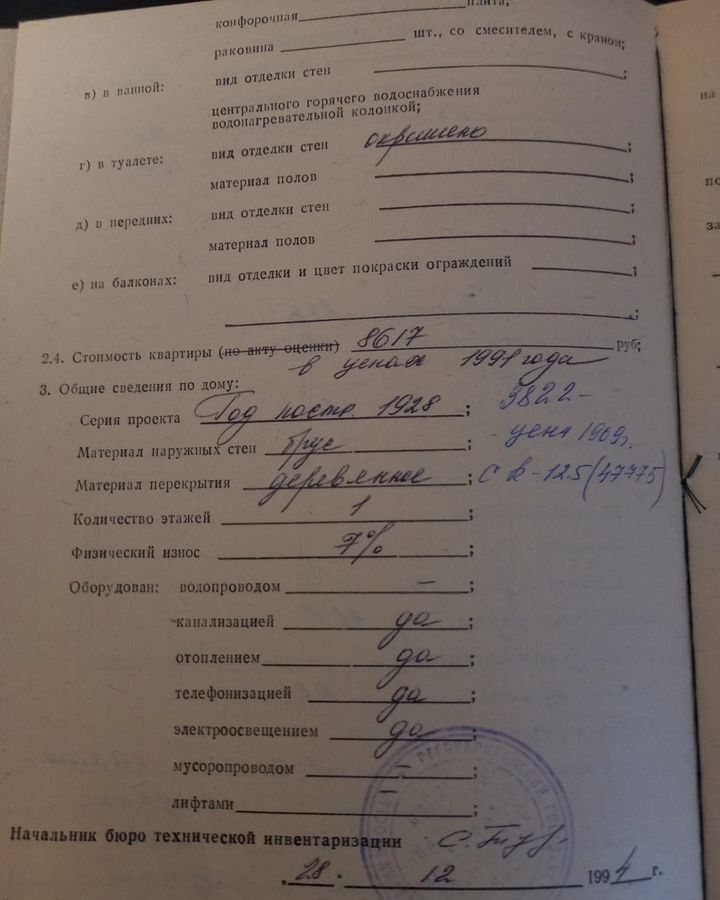 конфорочная плита;
раковина шт., со смесителем, с краном;
в) в ванной: вид отделки стен ;
центрального горячего водоснабжения
водонагревательной колонкой;
г) в туалете: вид отделки стен окрашено ;
материал полов ;
д) в передних: вид отделки стен ;
материал полов ;
е) на балконах: вид отделки и цвет покраски ограждений ;
;
2.4. Стоимость квартиры (по акту оценки) 8617 руб;
в ценах 1991 года
3. Общие сведения по дому:
Серия проекта Год постр. 1928 ; 3822-
Материал наружных стен брус ; цена 1969г.
Материал перекрытия деревянное ; с к-12.5 (47775)
Количество этажей 1 ;
Физический износ 7% ;
Оборудован: водопроводом — ;
канализацией да ;
отоплением да ;
телефонизацией да ;
электроосвещением да ;
мусоропроводом — ;
лифтами ;
Начальник бюро технической инвентаризации
28 . 12 1994 г.
на
по
за